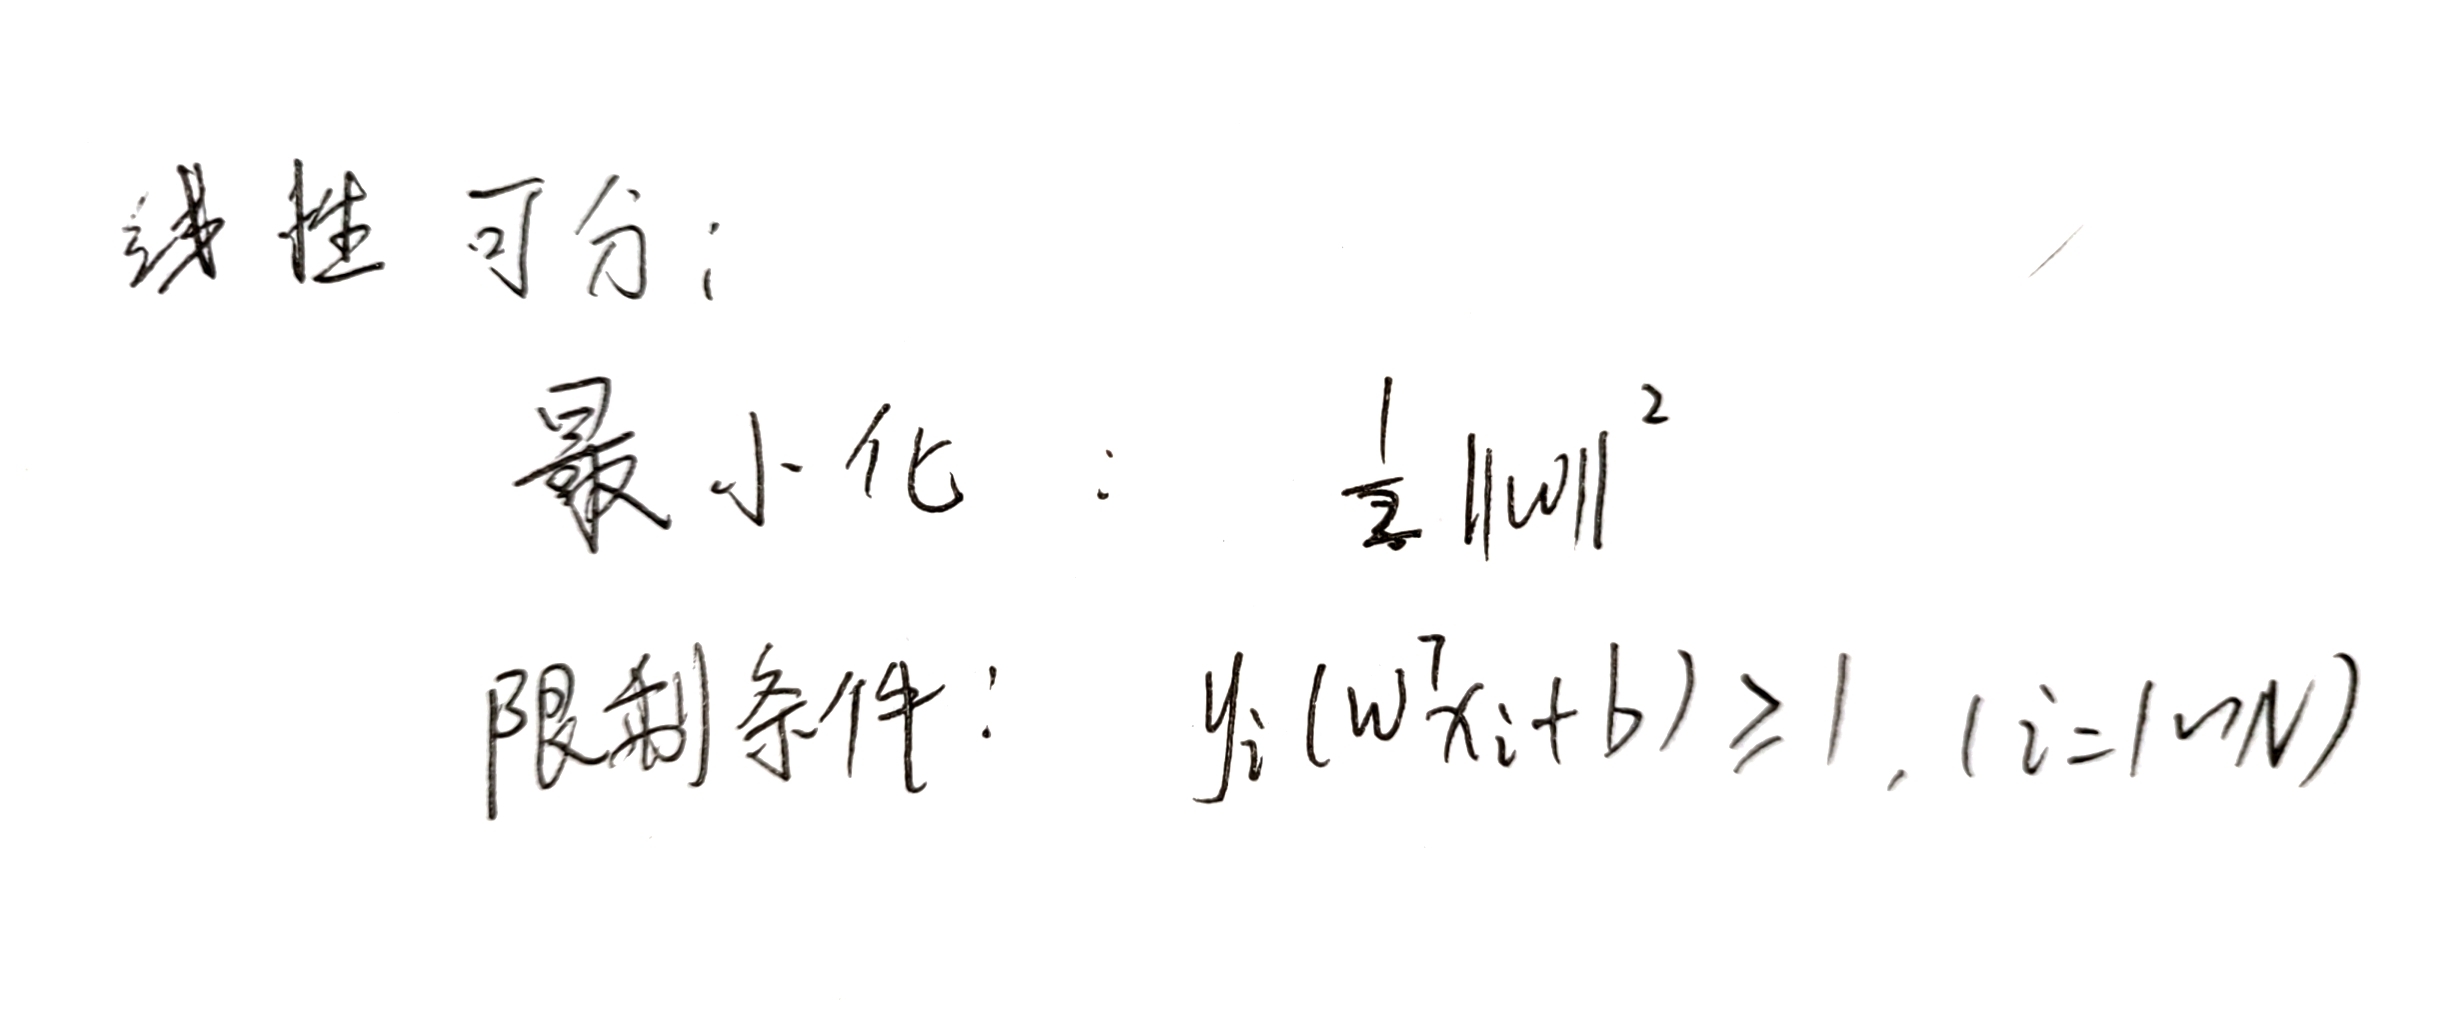 线性可分:
最小化: ½||w||²
限制条件: yᵢ(wᵀxᵢ+b) ≥ 1, (i=1~N)